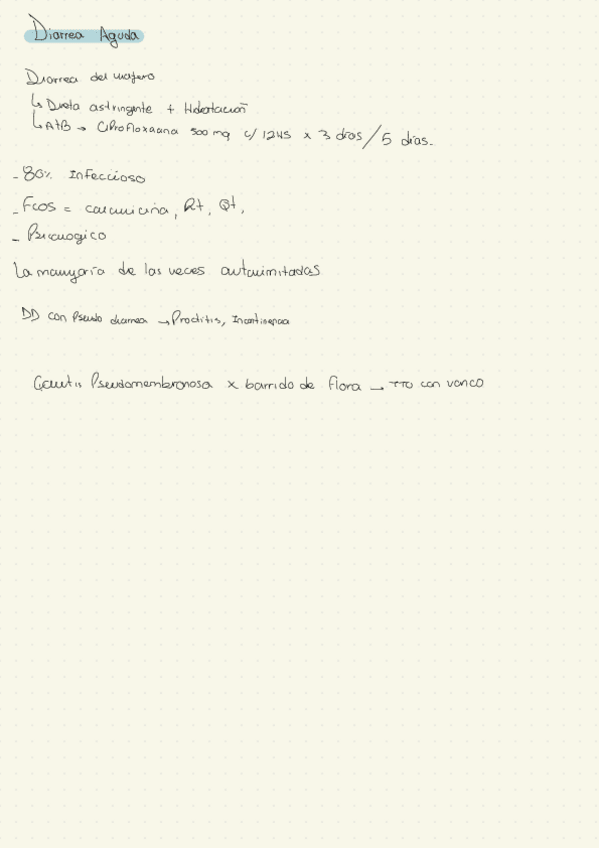 Diarrea Aguda
Diarrea del viajero
↳ Dieta astringente + Hidratación
↳ AtB → Ciprofloxacina 500 mg c/ 12hs x 3 días / 5 días.
- 80% Infeccioso
- Fcos = colchicina, Rt, Qt,
- Psicologico
La mayoría de las veces autolimitadas
DD con Pseudo diarrea → Proctitis, Incontinencia
Colitis Pseudomembranosa x barrido de flora → TTO con vanco